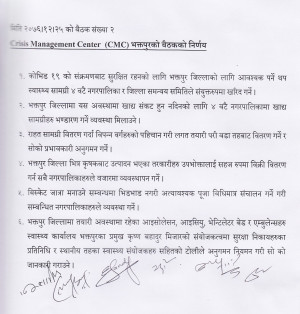 मिति २०७६।१२।२५ को बैठक संख्या २
Crisis Management Center (CMC) भक्तपुरको बैठकको निर्णय
१. कोभिड १९ को संक्रमणबाट सुरक्षित रहनको लागि भक्तपुर जिल्लाको लागि आवश्यक पर्ने थप
स्वास्थ्य सामग्री ४ वटै नगरपालिका र जिल्ला समन्वय समितिले संयुक्तरुपमा खरिद गर्ने।
२. भक्तपुर जिल्लामा यस अवस्थामा खाद्य संकट हुन नदिनको लागि ४ वटै नगरपालिकामा खाद्य
सामग्रीहरु भण्डारण गर्ने व्यवस्था मिलाउने।
३. राहत सामग्री वितरण गर्दा विपन्न वर्गहरुको पहिचान गरी लगत तयारी गरी वडा तहबाट वितरण गर्ने र
सोको प्रभावकारी अनुगमन गर्ने।
४. भक्तपुर जिल्ला भित्र कृषकबाट उत्पादन भएका तरकारीहरु उपभोक्तालाई सहज रुपमा बिक्री वितरण
गर्न सबै नगरपालिकाहरुले वजारमा व्यवस्थापन गर्ने।
५. बिस्केट जात्रा मनाउने सम्बन्धमा भिडभाड नगरी अत्यावश्यक पूजा विधिमात्र संचालन गर्ने गरी
सम्बन्धित नगरपालिकाहरुले व्यवस्था गर्ने।
६. भक्तपुर जिल्लामा तयारी अवस्थामा रहेका आइसोलेसन, आइसियु, भेन्टिलेटर बेड र एम्बुलेन्सहरु
स्वास्थ्य कार्यालय भक्तपुरका प्रमुख कृष्ण बहादुर मिजारको संयोजकत्वमा सुरक्षा निकायहरुका
प्रतिनिधि र स्थानीय तहका स्वास्थ्य संयोजकहरु सहितको टोलीले अनुगमन नियमन गरी सो को
जानकारी गराउने।